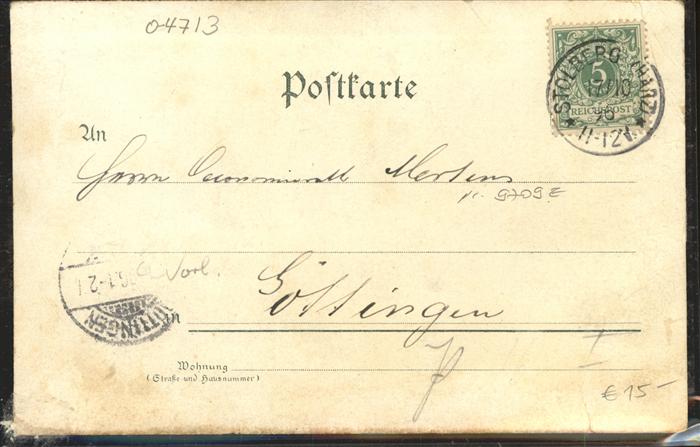 04713
5
REICHSPOST
STOLBERG (HARZ)
17/10
96
11-12V.
Postkarte
An
Herrn Oeconomierath Mertens
9709 E
Vorl.
1-2
GÖTTINGEN
in Göttingen
Wohnung
(Straße und Hausnummer)
€ 15-